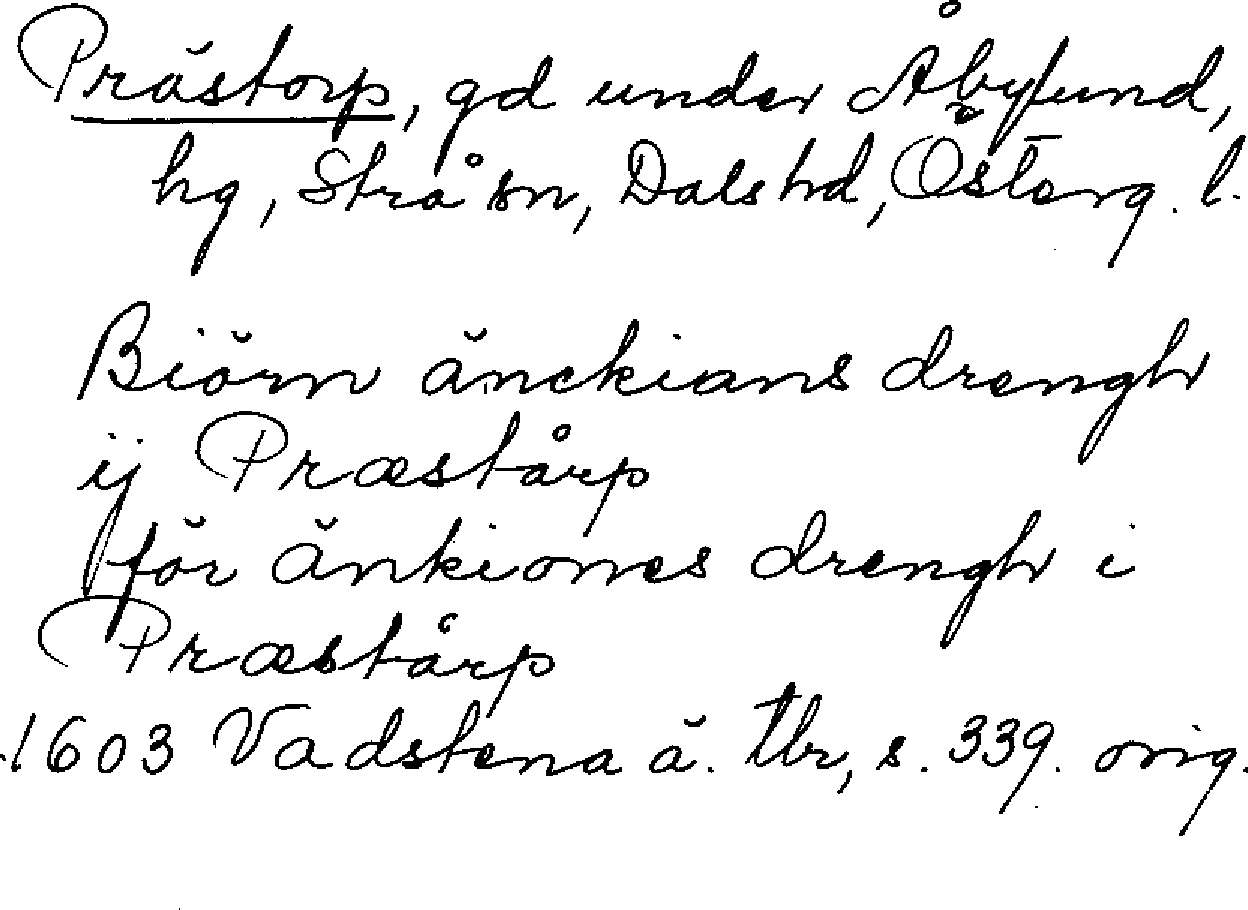 Prästorp, gd under Åbylund,
hg, Strå sn, Dals hd, Österg. l.
Biörn änckians drengh
ij Præstårp
för änkiones drengh i
Præstårp
1603 Vadstena ä. tbr, s. 339. orig.